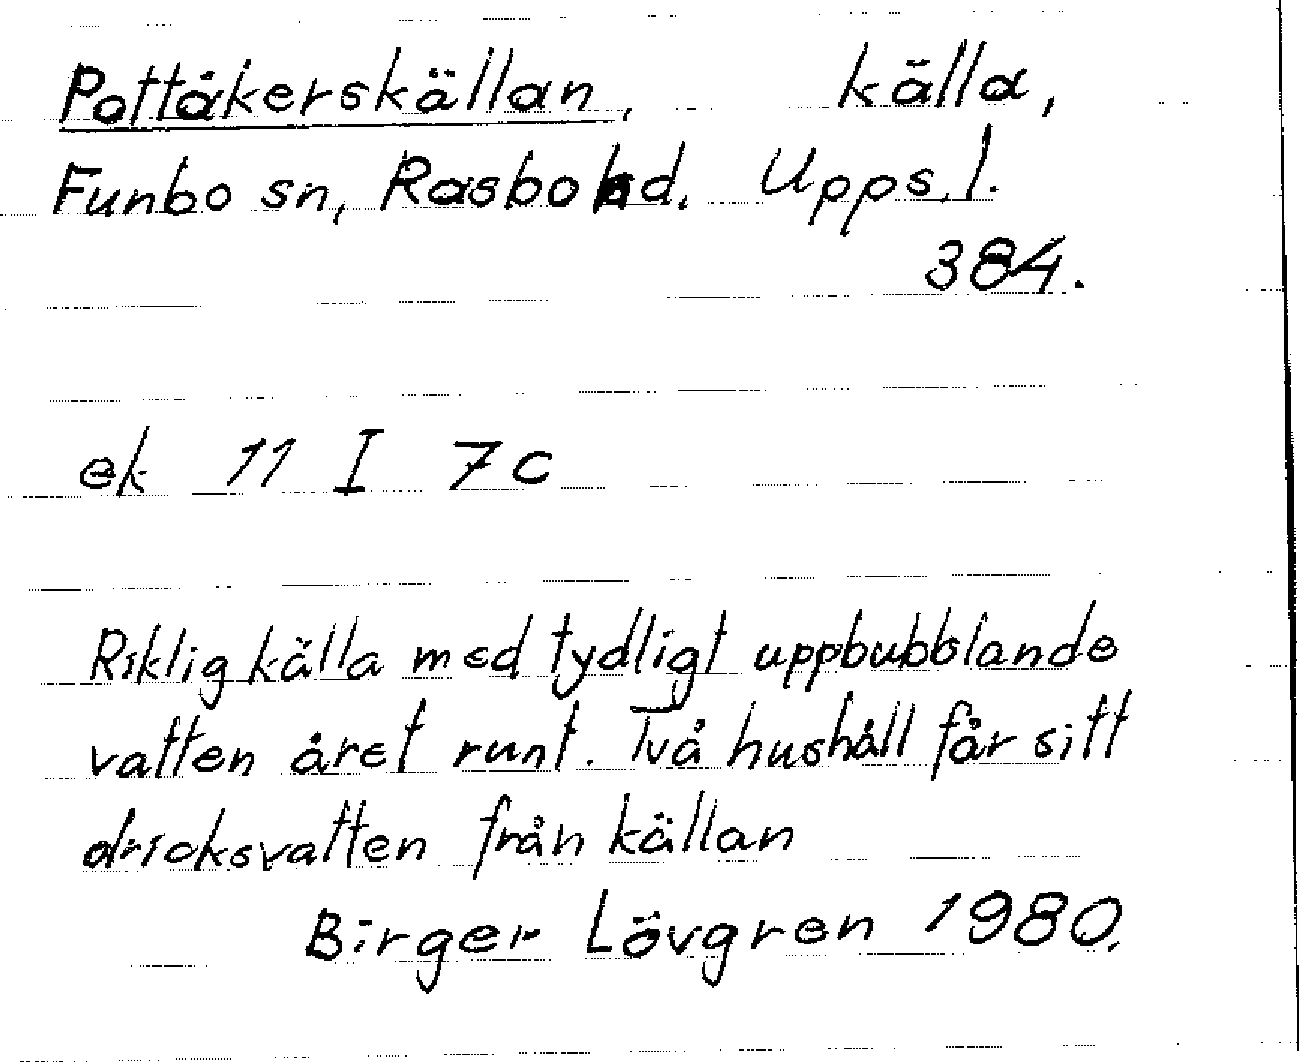 Pottåkerskällan, källa,
Funbo sn, Rasbo hd. Upps. l.
384.
ek 11 I 7c
Riklig källa med tydligt uppbubblande
vatten året runt. Två hushåll får sitt
dricksvatten från källan
Birger Lövgren 1980.